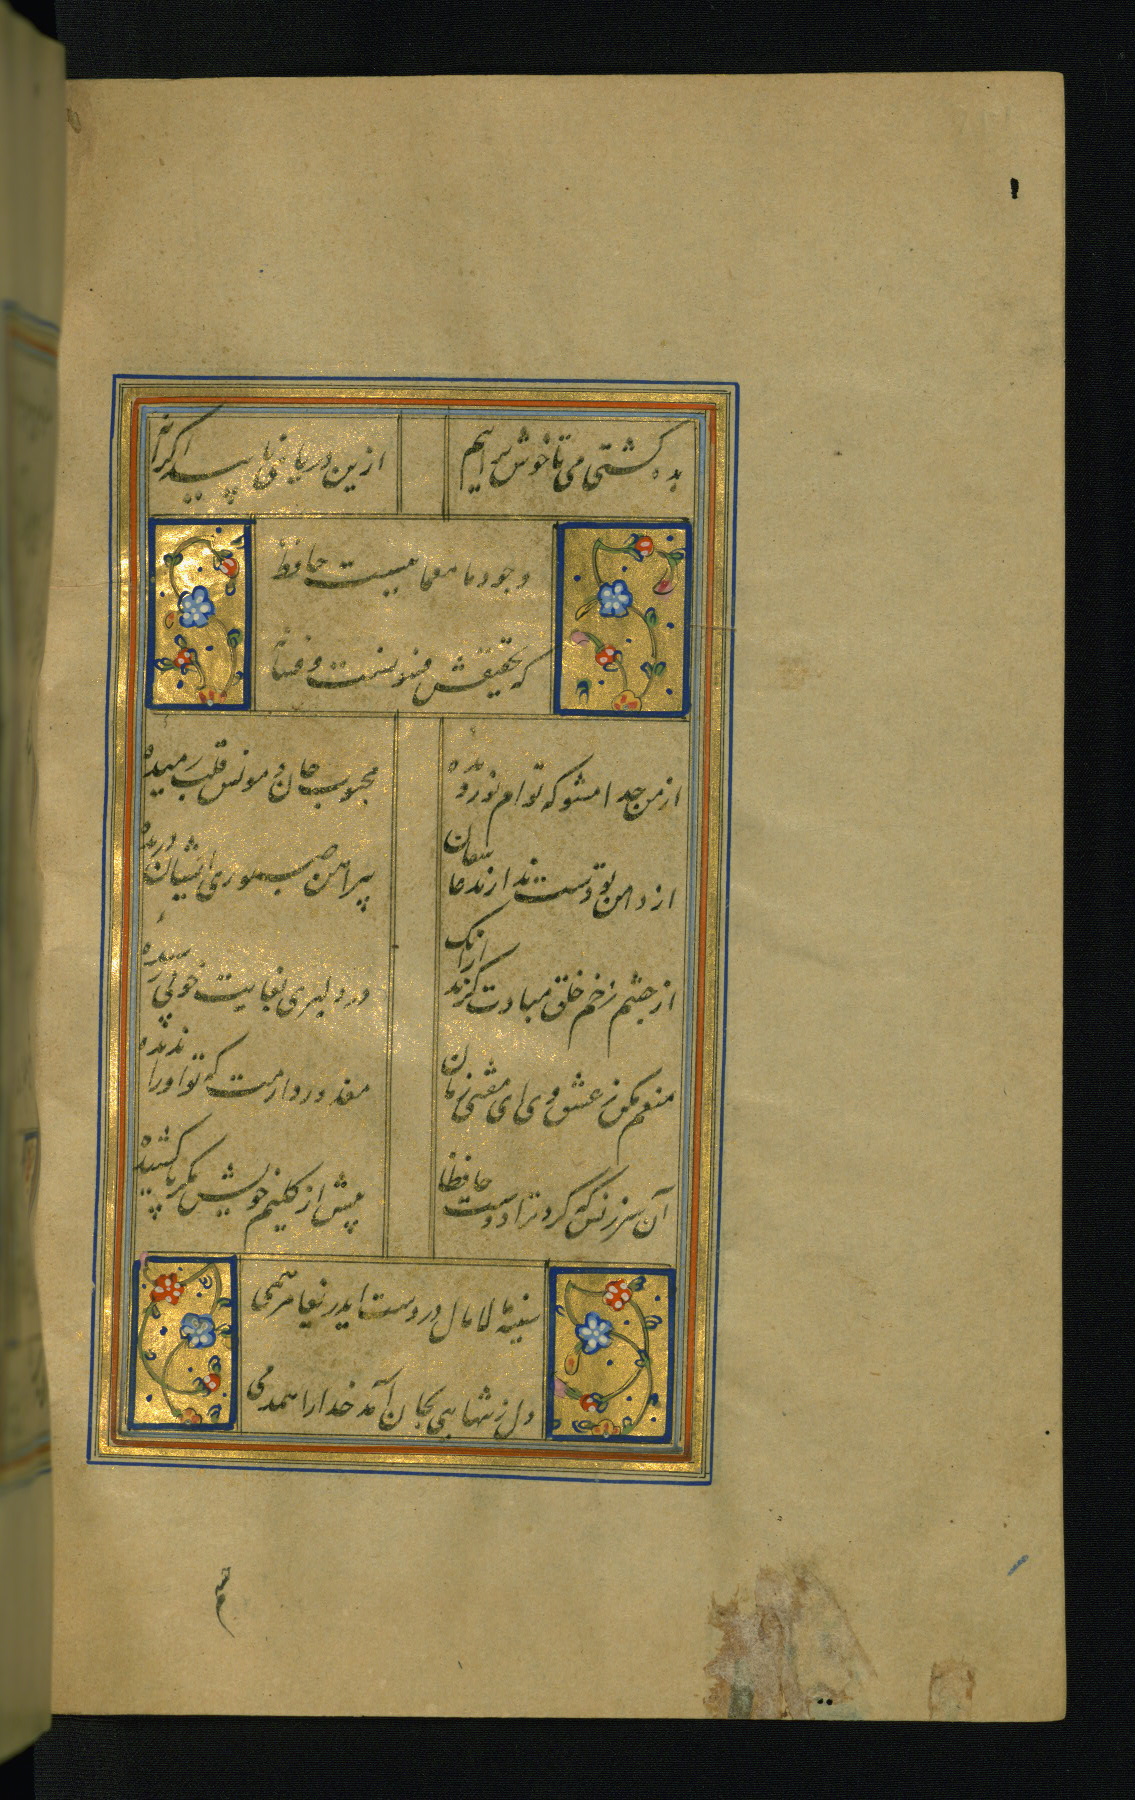 بده کشتی می تا خوش برآییم
ازین دریای ناپیدا کرانه
وجود ما معماییست حافظ
که تحقیقش فسونست و فسانه
از من جدا مشو که توام نور دیده
محبوب جان و مونس قلب رمیده
از دامن تو دست ندارند عاشقان
پیراهن صبوری ایشان دریده
از چشم زخم خلق مبادت گزند ازانک
در دلبری بغایت خوبی رسیده
منعم مکن ز عشق وی ای مفتی زمان
معذور دارمت که تو او را ندیده
آن سرزنش که کرد ترا دوست حافظا
بیش از گلیم خویش مگر پا کشیده
سینه مالامال دردست ای دریغا مرهمی
دل ز تنهایی بجان آمد خدا را همدمی